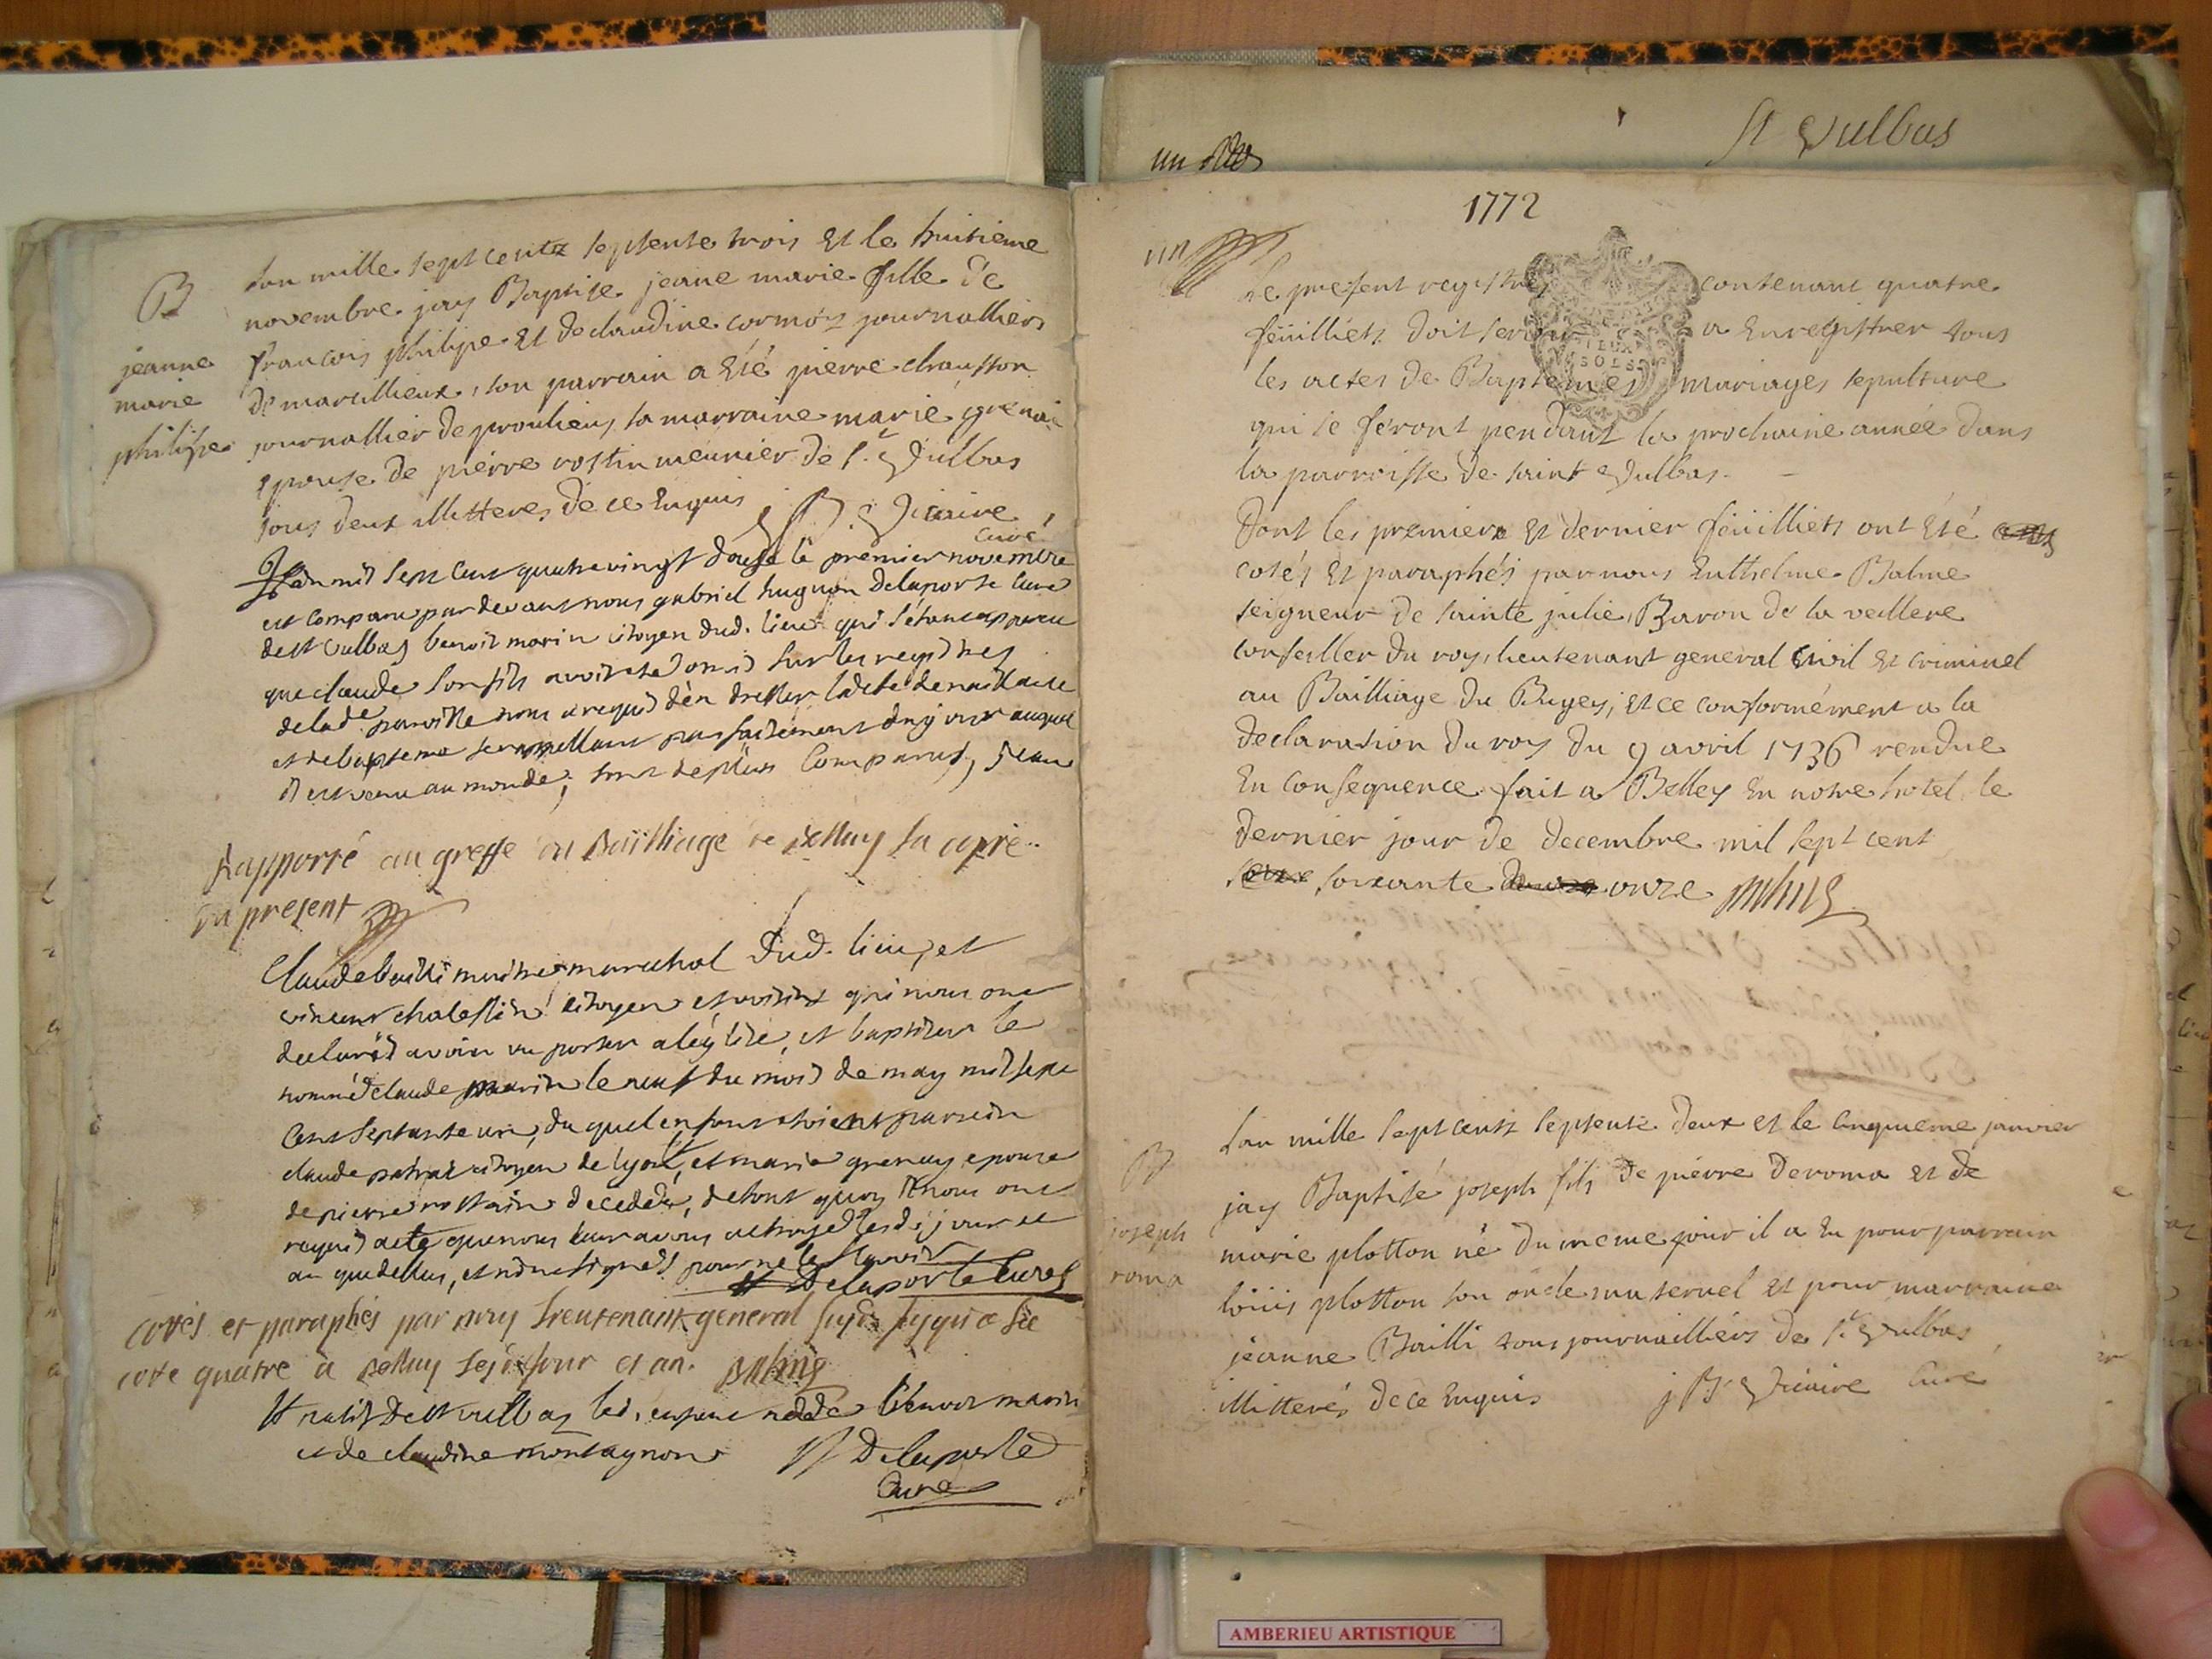 B
jeanne
marie
philipe
Lan mille sept centz septente trois Et le huitieme
novembre jay Baptise jeane marie fille de
francois philipe Et de claudine cormoz journalliers
de marcillieux, son parrain a Eté pierre chausson
journallier de proulieu, sa marraine marie grenai
epouse de pierre rostin meunier de St Vulbas
tous deux illitteres de ce Enquis J B Vicaire
Curé
Lan mil sept cent quatrevingt douse le premier novembre
est comparu par devant nous gabriel huguon Delaporte Curé
de St Vulbas benoit marin citoyen dud. lieu qui s'étant apperçu
que claude son fils avoit eté omis sur les registres
de lade paroisse nous a requis d'en dresser l'acte de naissance
et de bapteme se rappellant parfaitement du jour auquel
il est venu au monde; sont de plus Comparus, jean
Rapporté au greffe du Bailliage de Belley la copie
du present
Claude bailli maitre marechal dud. lieu, et
vincent chalessin citoyen et voisins qui nous ont
declarés avoir vu porter a leglise, et baptiser le
nommé claude marin le neuf du mois de may mil sept
Cent septante un, du quel enfant etoient parrein
claude patrat citoyen de lyon, et marie grenay epouse
de pierre rostain decedée, de tout quoy Il nous ont
requis acte que nous leur avons octroyé lesd. jour et
an que dessus, et n'ont signés pour ne le sçavoir
H Delaporte Curé
Cottés et paraphés par nous Lieutenant general
cote quatre a Belley les d. jour et an. Balme
H natif de St vulbas led. enfant né de benoit marin
et de claudine montagnon H Delaporte
Curé
un
St Vulbas
1772
un
Le present registre contenant quatre
feüilliets doit servir a Enregistrer tous
DEUX
SOLS
les actes de Baptemes mariages sepulture
qui se feront pendant la prochaine année dans
la parroisse de saint Vulbas.
Dont les premiers Et dernier feüilliets ont Eté
cotés Et paraphés par nous Enthelme Balme
seigneur de sainte julie, Baron de la veillere
conseiller du roy, lieutenant general Civil Et criminel
au Bailliage du Bugey; Et ce conformément a la
declaration du roy du 9 avril 1736 rendue
En consequence fait a Belley En notre hotel le
dernier jour de decembre mil sept cent
soixante onze Balme
B
joseph
roma
Lan mille sept centz septente deux et le cinquieme janvier
jay Baptisé joseph fils de pierre deroma et de
marie plotton né du meme jour il a Eu pour parrain
loüis plotton son oncle maternel Et pour marraine
jeanne Bailli tous journailliers de St Vulbas
illitterés de ce Enquis J B Vicaire Curé
AMBERIEU ARTISTIQUE